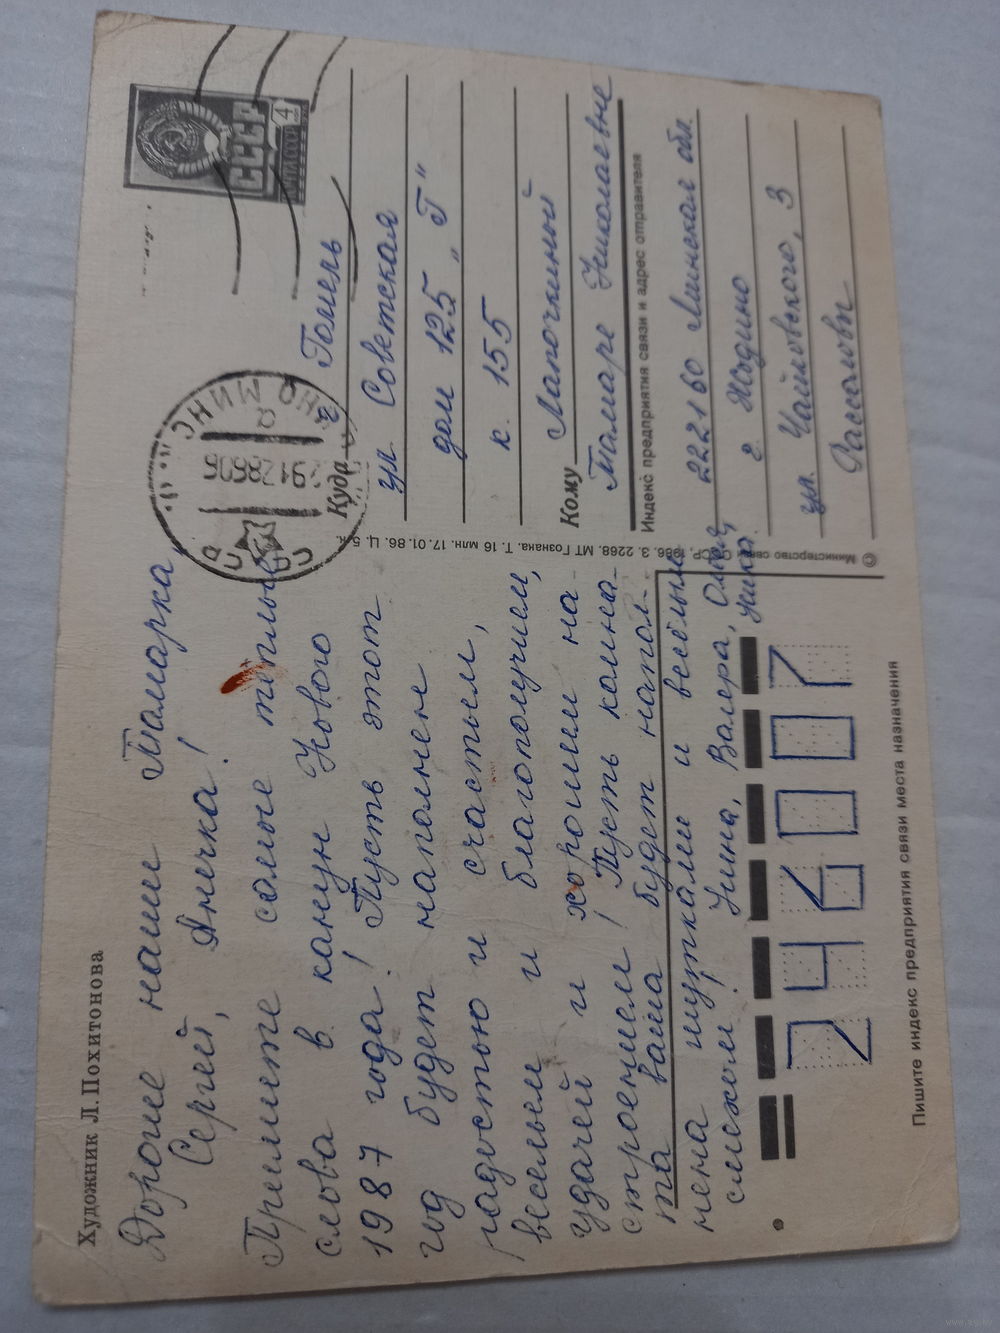 Художник Л. Похитонова
Дорогие наши Тамарка,
Сергей, Анечка!
Примите самые теплые
слова в канун Нового
1987 года! Пусть этот
год будет наполнен
радостью и счастьем,
весельем и благополучием,
удачей и хорошим на-
строением! Пусть комна-
та ваша будет напол-
нена шутками и весёлым
смехом! Нина, Валера, Оля,
СССР
4
ПОЧТА СССР
Куда г. Гомель
ул. Советская
дом 125 „Г"
к. 155
Кому Лапочкиной
Тамаре Николаевне
Индекс предприятия связи и адрес отправителя
222160 Минская обл.
г. Жодино
ул. Чайковского, 3
Рассоловы
© Министерство связи СССР, 1986. З. 2268. МТ Гознака. Т. 16 млн. 17.01.86. Ц. 5 к.
246007
Пишите индекс предприятия связи места назначения